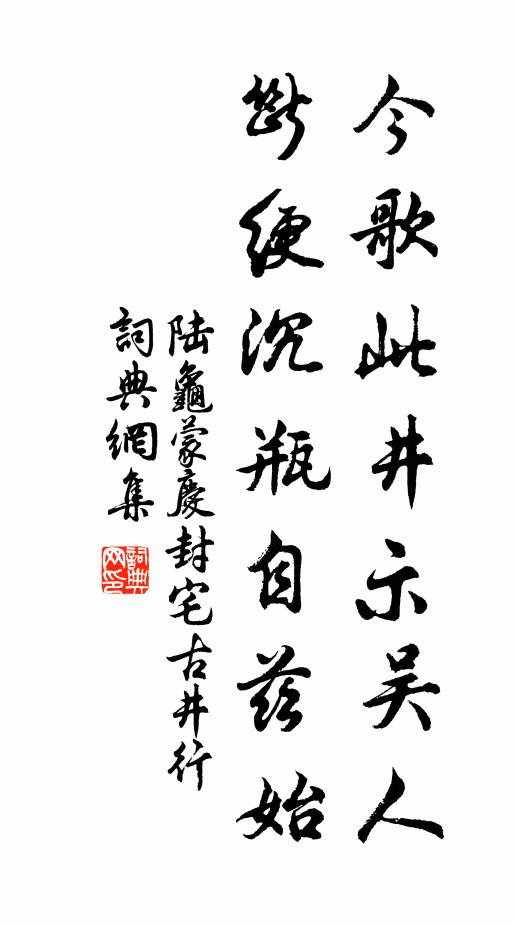 今歌此井示吴人
断綆沉瓶自茲始
陆龜蒙慶封宅古井行
詞典網集
詞典网印